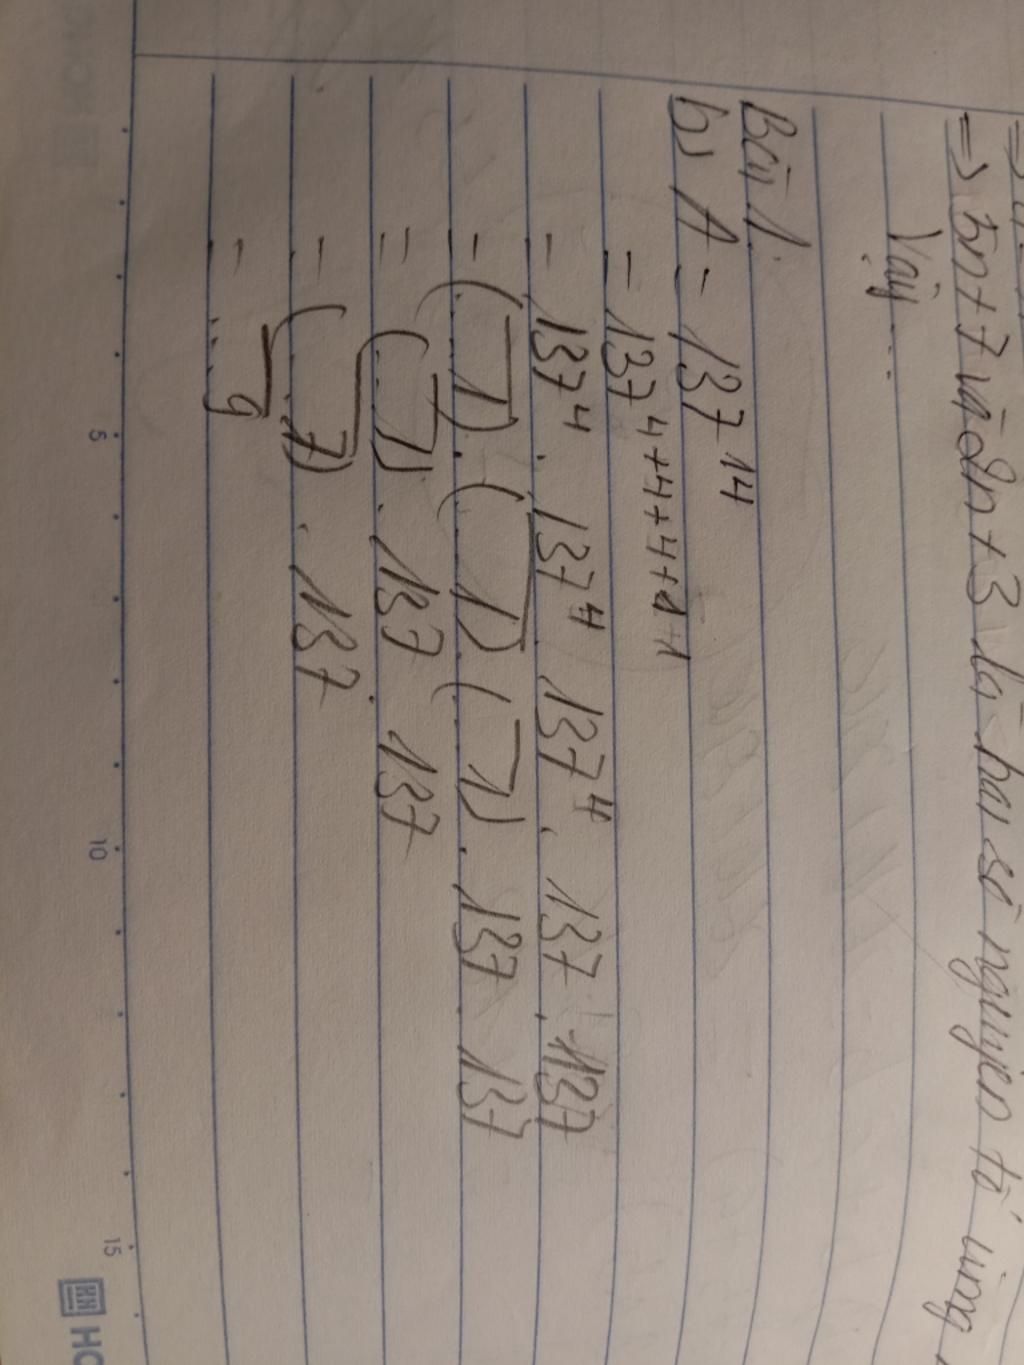 => 5n+7 và 2n+3 là hai số nguyên tố cùng
Vậy...
Bài 1.
b) A = 137^14
= 137^4+4+4+1+1
= 137^4 . 137^4 . 137^4 . 137 . 137
= (...1) . (...1) . (...1) . 137 . 137
= (...1) . 137 . 137
= (...7) . 137
= ...9
5 10 15